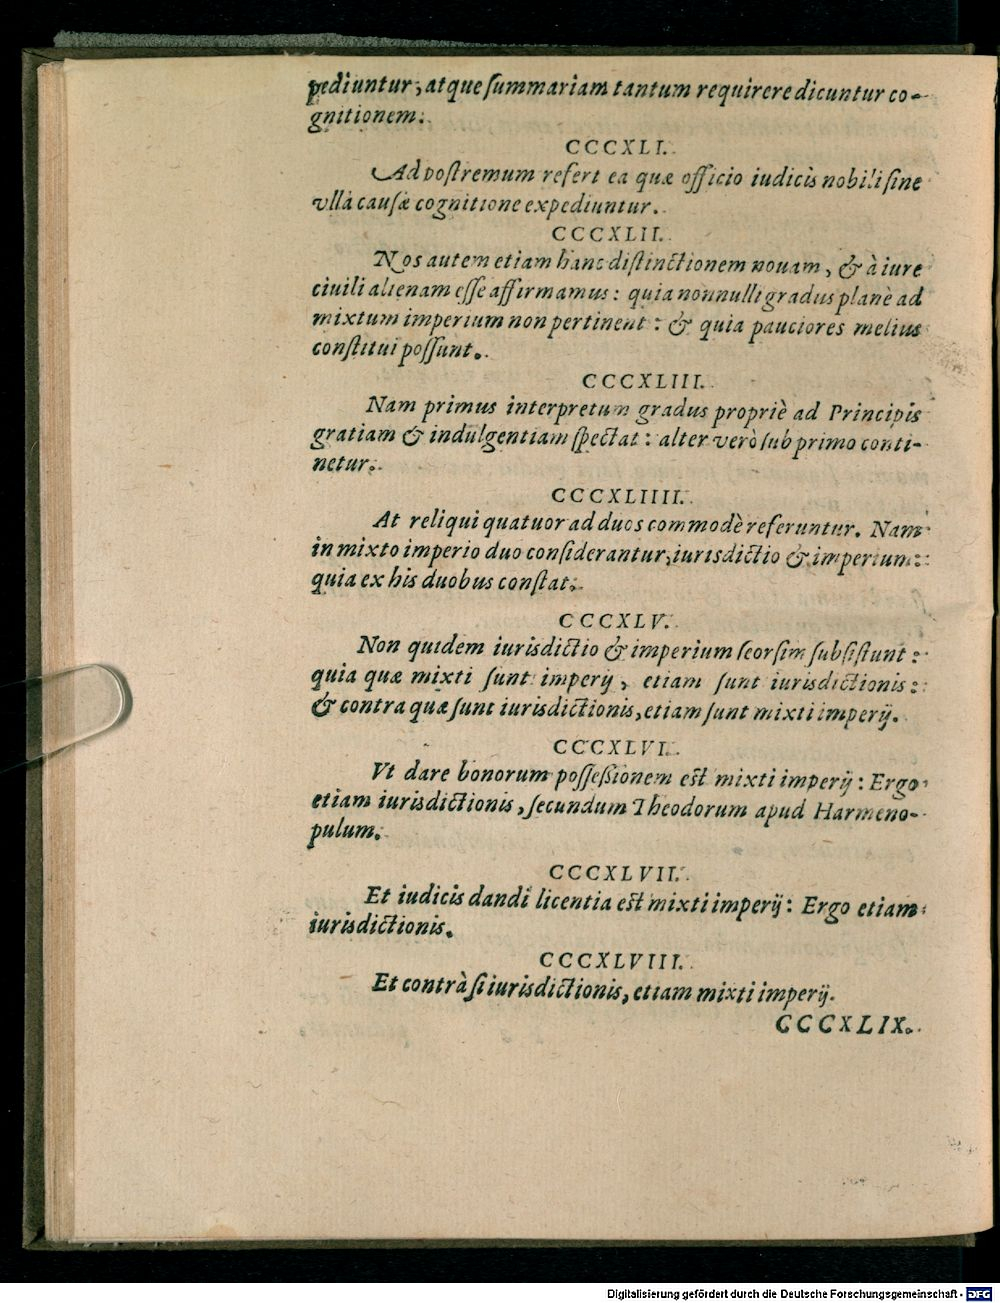 pediuntur, atque ſummariam tantum requirere dicuntur co-
gnitionem.
CCCXLI.
Ad poſtremum refert ea quæ officio iudicis nobili ſine
vlla cauſæ cognitione expediuntur.
CCCXLII.
Nos autem etiam hanc diſtinctionem nouam, & à iure
ciuili alienam eſſe affirmamus: quia nonnulli gradus planè ad
mixtum imperium non pertinent: & quia pauciores melius
conſtitui poſſunt.
CCCXLIII.
Nam primus interpretum gradus propriè ad Principis
gratiam & indulgentiam ſpectat: alter verò ſub primo conti-
netur.
CCCXLIIII.
At reliqui quatuor ad duos commodè referuntur. Nam
in mixto imperio duo conſiderantur, iurisdictio & imperium:
quia ex his duobus conſtat.
CCCXLV.
Non quidem iurisdictio & imperium ſeorſim ſubſiſtunt:
quia quæ mixti ſunt imperij, etiam ſunt iurisdictionis:
& contra quæ ſunt iurisdictionis, etiam ſunt mixti imperij.
CCCXLVI.
Vt dare bonorum poſſeßionem eſt mixti imperij: Ergo
etiam iurisdictionis, ſecundum Theodorum apud Harmeno-
pulum.
CCCXLVII.
Et iudicis dandi licentia eſt mixti imperij: Ergo etiam
iurisdictionis.
CCCXLVIII.
Et contrà ſi iurisdictionis, etiam mixti imperij.
CCCXLIX.
Digitalisierung gefördert durch die Deutsche Forschungsgemeinschaft - DFG